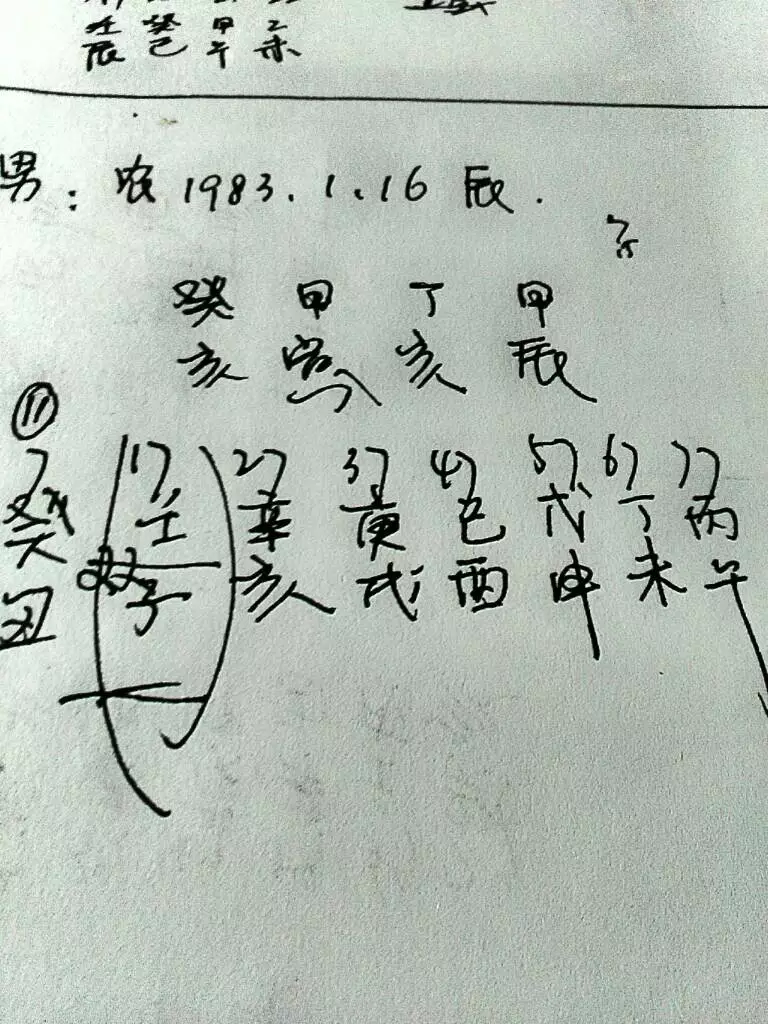 壬 癸 甲 乙
辰 巳 午 未
男：农1983.1.16 辰.
癸 甲 丁 甲
亥 寅 亥 辰
⑪
7 17 27 37 47 57 67 77
癸 壬 辛 庚 己 戊 丁 丙
丑 子 亥 戌 酉 申 未 午